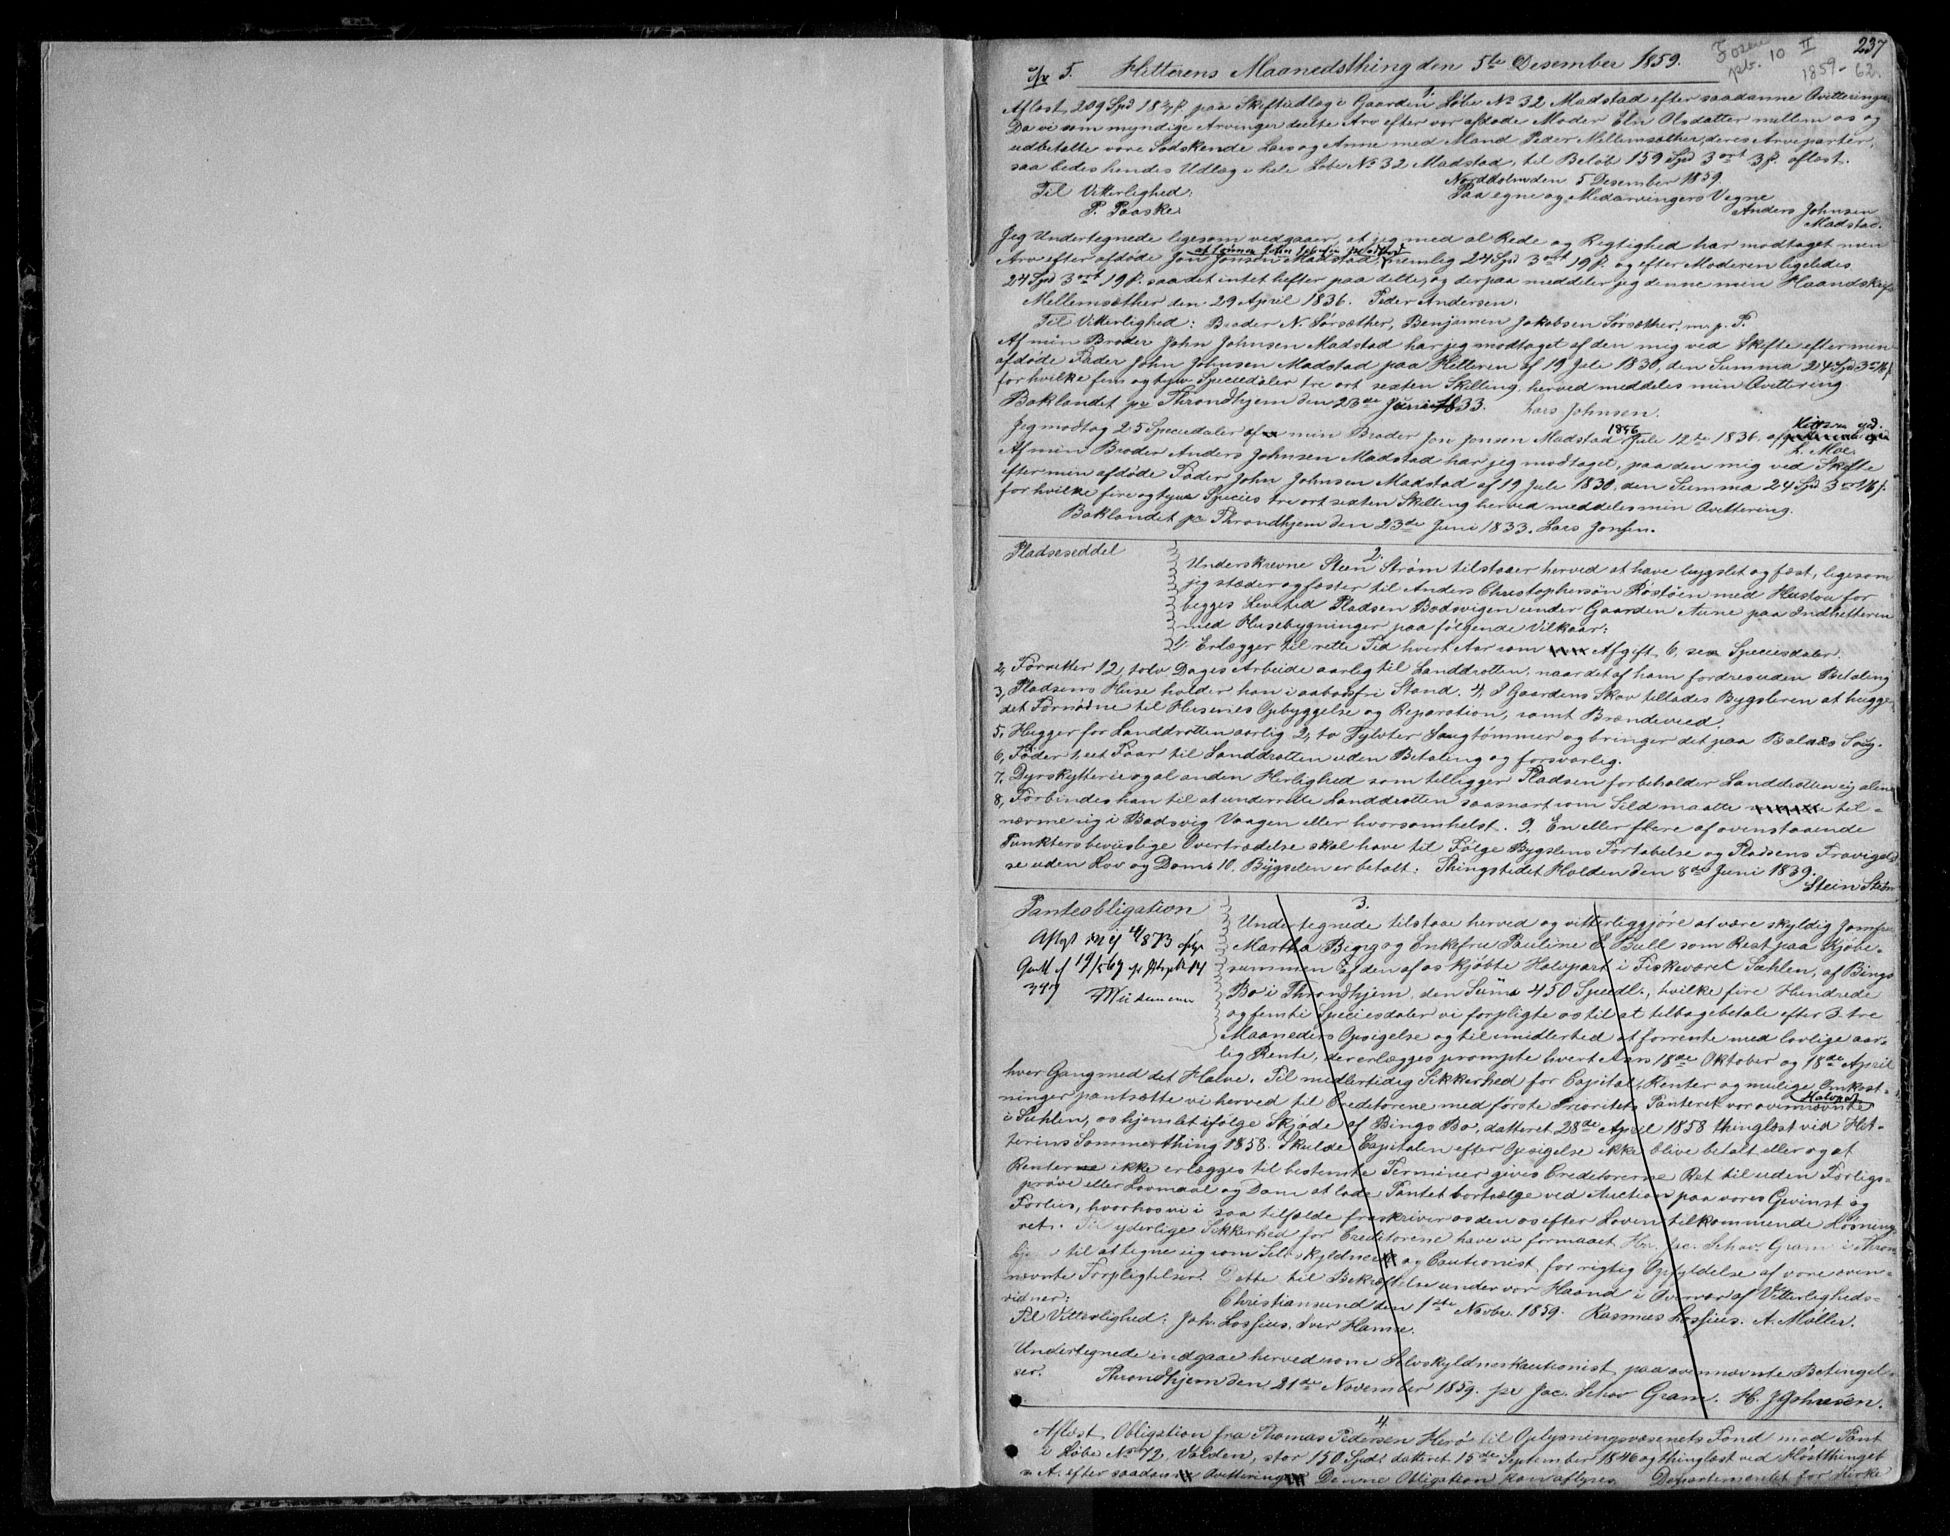 237
Fosen pb. 10 II
1859-62.
5. Hitterens Maanedsthing den 5te Desember 1859.
1.
Aflæst 209 Spd 18 β. paa Skifteudlæg i Gaarden Løbe No 32 Madstad efter saadanne Qvitteringer
Da vi som myndige Arvinger deelte Arv efter vor afdøde Moder Eln Olsdatter mellem os og
udbetalte vore Sødskende Lars og Anne med Mand Peder Mellemsæther, deres Arveparter,
saa bedes hendes Udlæg i hele Løbe No 32 Madstad, til Beløb 159 Spd 3 ort 3 β. aflæst.
Norddolm den 5 Desember 1859
Til Vitterlighed: Paa egne og Medarvingers Vegne
P. Paaske. Anders Johnsen
Madstad.
Jeg Undertegnede ligesom vedgaaer, at jeg med al Rede og Rigtighed har modtaget min
Arv efter afdøde Jon Jonsen Madstad nemlig 24 Spd 3 ort 19 β. og efter Moderen ligeledes
24 Spd 3 ort 19 β. saa det intet hefter paa dette, og derpaa meddeler jeg denne min Haandskrift
Mellemsæther den 29 April 1836. Peder Andersen.
Til Vitterlighed: Broder N. Sørsæther, Benjamin Jakobsen Sørsæther, m. p. P.
Af min Broder John Johnsen Madstad har jeg modtaget af den mig ved Skifte efter min
afdøde Fader John Johnsen Madstad paa Hitteren af 19 Juli 1830, den Summa 24 Spd 3 ort 16 β
for hvilke fem og tyve Speciedaler tre ort sexten Skilling, herved meddeles min Qvittering.
Baklandet pr Throndhjem den 23de Juni 1833. Lars Johnsen.
Jeg modtog 25 Speciedaler af min Broder Jon Jonsen Madstad Juli 12te 1836.
Af min Broder Anders Johnsen Madstad har jeg modtaget, paa den mig ved Skifte
efter min afdøde Fader John Johnsen Madstad af 19 Juli 1830, den Summa 24 Spd 3 ort 16 β.
for hvilke fire og tyve Species tre ort sexten Skilling herved meddeles min Qvittering.
Baklandet pr Throndhjem den 23de Juni 1833. Lars Jonsen.
Pladseseddel
2.
Underskrevne Steen Strøm tilstaaer herved at have bygslet og fæst, ligesom
jeg stæder og fæster til Anders Christophersøn Röstöen med Hustru for
begges Levetid Pladsen Badsvigen under Gaarden Aune paa Indhitteren
med Husebygninger paa følgende Vilkaar:
1. Erlægger til rette Tid hvert Aar som Afgift 6, sex Speciesdaler.
2, Forretter 12, tolv Dages Arbeide aarlig til Landdrotten, naar det af ham fordres uden Betaling
3, Pladsens Huse holder han i aabodsfri Stand. 4, I Gaardens Skov tillades Bygsleren at hugge
det Fornødne til Husenes Opbyggelse og Reparation, samt Brændeveed.
5. Hugger for Landdrotten aarlig 2, to Tylvter Saugtømmer og bringer det paa Balnæs Saug.
6, Föder 1, eet Faar til Landdrotten uden Betaling og forsvarlig.
7. Dyrskytterie og al anden Herlighed som tilligger Pladsen forbeholder Landdrotten sig alene
8, Forbindes han til at underrette Landdrotten saasnart som Sild maatte til-
nærme sig i Badsvig Vaagen eller hvorsomhelst. 9. En eller flere af ovenstaaende
Punkters beviislige Overtrædelse skal have til Følge Bygslens Fortabelse og Pladsens Fravigel-
se uden Lov og Dom. 10. Bygselen er betalt. Thingstedet Holden den 8de Juni 1839.
Stein Strøm
Panteobligation
3.
Undertegnede tilstaae herved og vitterliggjøre at være skyldig Jomfru
Martha Bing og Enkefru Pauline E. Bull som Rest paa Kjøbe-
summen af den af os kjøbte Halvpart i Fiskeværet Sæhlen, af Bings
Bo i Throndhjem, den Sum 450 Specdl., hvilke fire Hundrede
og femti Speciesdaler vi forpligte os til at tilbagebetale efter 3 tre
Maaneders Opsigelse og til imidlertid at forrente med lovlige aar-
lig Rente, der erlægges prompte hvert Aars 18de Oktober og 18de April
hver Gang med det Halve. Til midlertidig Sikkerhed for Capital, Renter og mulige Omkost-
ninger pantsætte vi herved til Creditorene med første Prioritets Panteret vor ovennævnte Halvpart
i Sæhlen, os hjemlet ifølge Skjøde af Bings Bo, datteret 28de April 1858 thinglæst ved Hit-
terens Sommerthing 1858. Skulde Capitalen efter Opsigelse ikke blive betalt eller og at
Renterne ikke erlægges til bestemte Terminer gives Creditorerne Ret til uden Forligs-
prøve eller Lovmaal og Dom at lade Pantet bortsælge ved Auction paa vores Gevinst og
Forlis, hvorhos vi i saa tilfælde fraskriver os den os efter Loven tilkommende Løsnings
ret. Til yderlige Sikkerhed for Creditorene have vi formaaet Hr. Jac. Schov. Gram i Thron
til at tegne sig som Selvskyldner og Cautionist, for rigtig Opfyldelse af vore oven-
nævnte Forpligtelser. Dette til Bekræftelse under vor Haand i Overvær af Vitterligheds-
vidner: Christiansund den 1ste Novbr. 1859. Rasmus Lossius. A. Møller.
Til Vitterlighed: Joh. Lossius. Iver Hamre.
Undertegnede indgaae herved som Selvskyldnerkautionist paa ovennævnte Betingel-
ser. Throndhjem den 21de November 1859. pr Jac. Schov Gram. H. J. Johnsen.
4.
Aflæst Obligation fra Thomas Pedersen Herö til Oplysningsvæsenets Fond mod Pant
i Løbe No 72, Valden, stor 150 Spdl. datteret 15de September 1846 og thinglæst ved Høstthinget
s. A. efter saadan Qvittering Denne Obligation kan aflyses. Departementet for Kirke